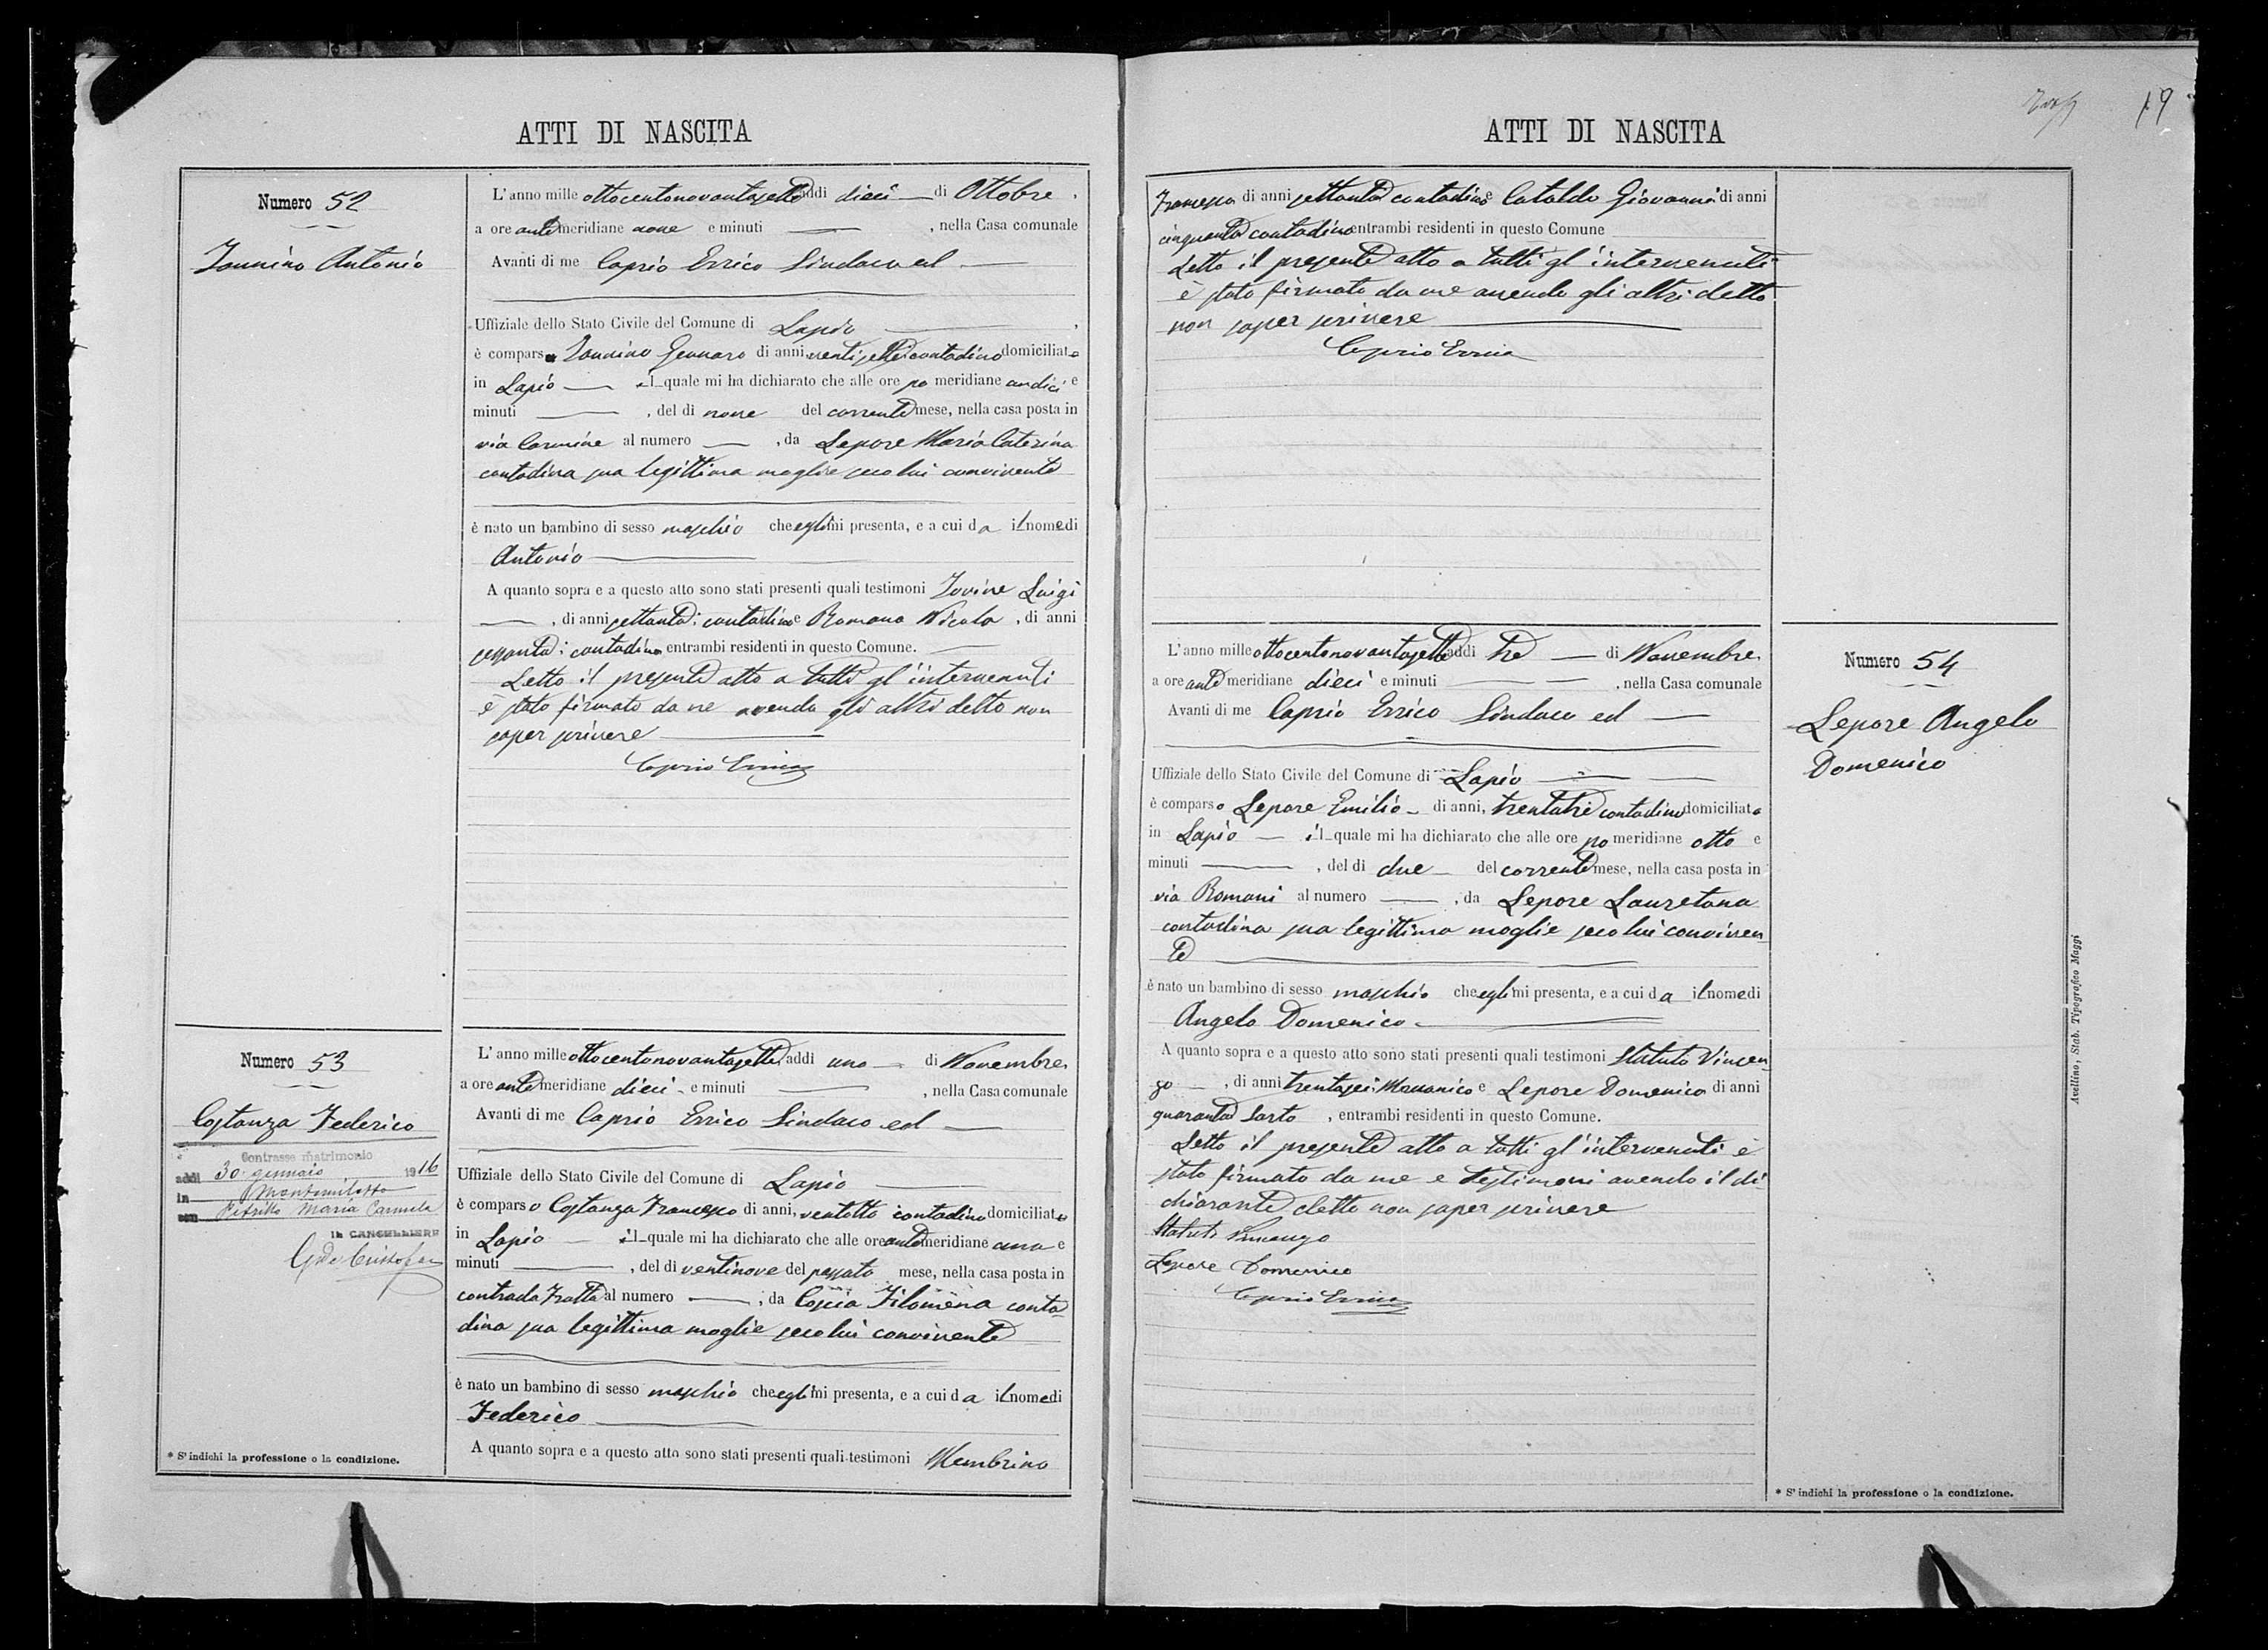 ATTI DI NASCITA
Numero 52
Iannino Antonio
L'anno mille ottocentonovantasette addi dieci di Ottobre
a ore antemeridiane nove e minuti , nella Casa comunale
Avanti di me Caprio Errico Sindaco ed
Uffiziale dello Stato Civile del Comune di Lapio
è comparso Iannino Gennaro di anni ventisette contadino domiciliato
in Lapio il quale mi ha dichiarato che alle ore pomeridiane undici e
minuti , del dì nove del corrente mese, nella casa posta in
via Carmine al numero , da Lepore Maria Caterina
contadina sua legittima moglie seco lui convivente
è nato un bambino di sesso maschio che egli mi presenta, e a cui da il nome di
Antonio
A quanto sopra e a questo atto sono stati presenti quali testimoni Iovine Luigi
, di anni settanta; contadino e Romano Nicola , di anni
sessanta; contadino entrambi residenti in questo Comune.
Letto il presente atto a tutti gl'intervenuti
è stato firmato da me avendo gli altri detto non
saper scrivere
Caprio Errico
Numero 53
Costanza Federico
Contrasse matrimonio
addì 30 gennaio 1916
in Montemiletto
con Petrillo Maria Carmela
IL CANCELLIERE
L'anno mille ottocentonovantasette addi uno di Novembre
a ore antemeridiane dieci e minuti , nella Casa comunale
Avanti di me Caprio Errico Sindaco ed
Uffiziale dello Stato Civile del Comune di Lapio
è comparso Costanza Francesco di anni, ventotto contadino domiciliato
in Lapio il quale mi ha dichiarato che alle ore antemeridiane una e
minuti , del dì ventinove del passato mese, nella casa posta in
contrada Fratta al numero , da Coscia Filomena conta
dina sua legittima moglie seco lui convivente
è nato un bambino di sesso maschio che egli mi presenta, e a cui da il nome di
Federico
A quanto sopra e a questo atto sono stati presenti quali testimoni Membrino
* S'indichi la professione o la condizione.
19
ATTI DI NASCITA
Francesco di anni settanta contadino e Cataldo Giovanni di anni
cinquanta contadino entrambi residenti in questo Comune
Letto il presente atto a tutti gl'intervenuti
è stato firmato da me avendo gli altri detto
non saper scrivere
Caprio Errico
L'anno mille ottocentonovantasette addi tre di Novembre
a ore antemeridiane dieci e minuti , nella Casa comunale
Avanti di me Caprio Errico Sindaco ed
Uffiziale dello Stato Civile del Comune di Lapio
è comparso Lepore Emilio di anni, trentatre contadino domiciliato
in Lapio il quale mi ha dichiarato che alle ore pomeridiane otto e
minuti , del dì due del corrente mese, nella casa posta in
via Romani al numero , da Lepore Lauretana
contadina sua legittima moglie seco lui conviven
te
è nato un bambino di sesso maschio che egli mi presenta, e a cui da il nome di
Angelo Domenico
A quanto sopra e a questo atto sono stati presenti quali testimoni Statuto Vincen-
zo , di anni trentasei Meccanico e Lepore Domenico di anni
quaranta Sarto , entrambi residenti in questo Comune.
Letto il presente atto a tutti gl'intervenuti è
stato firmato da me e testimoni avendo il di
chiarante detto non saper scrivere
Statuto Vincenzo
Lepore Domenico
Caprio Errico
Numero 54
Lepore Angelo
Domenico
Avellino, Stab. Tipografico Maggi
* S'indichi la professione o la condizione.